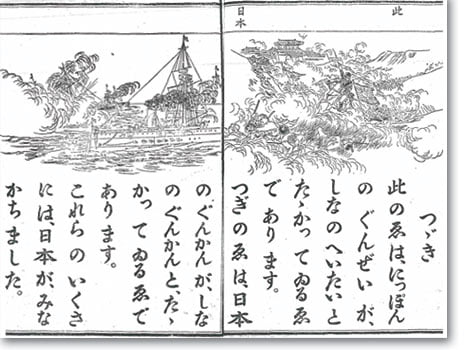 此
日本
つゞき
此のゑは、につぽん
の ぐんぜい が、
しなの へいたいと
たゝかつ て ゐる ゑ
で あり ます。
つぎの ゑ は、日本
の ぐんかん が、しな
の ぐんかんと、たゝ
かつ て ゐる ゑ で
あり ます。
これら の いくさ
には、日本が、みな
かち ました。